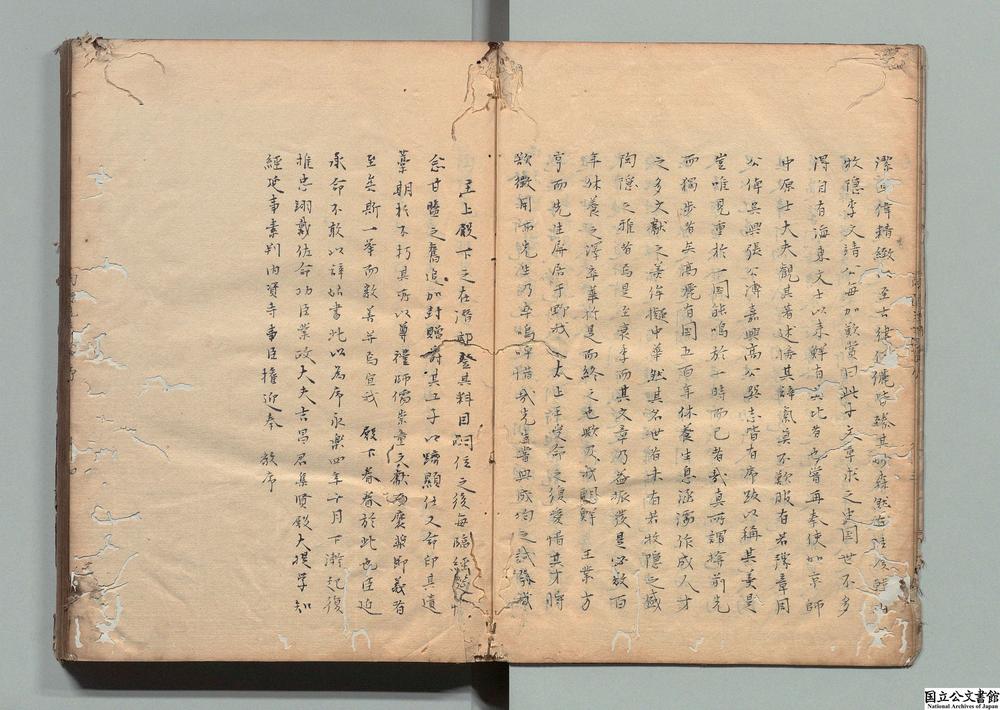 潔
牧隱李文靖公每加歎賞曰此子文章求之中國世不多
得自有海東文士以來鮮有其比者也嘗再奉使如京師
中原士大夫觀其著述接其辭氣莫不歎服有若豫章周
公倬吳興張公溥嘉興高公巽志皆有序跋以稱其美是
豈唯見重於一國能鳴於一時而已者哉真所謂掩前光
而獨步者矣高麗有國五百年休養生息涵濡作成人才
之多文獻之美侔擬中華然其名世者未有若牧隱之盛
陶隱之雅者焉是至衰季而其文章乃益振發是必數百
年休養之澤卒萃於是而終之也歟及我朝鮮 王業方
亨而先生屏居于野我 太上王受命之後愛惜其才將
欲徵用而先生乃卒嗚呼惜哉先生嘗典成均之試我
主上殿下之在潛邸登其科目嗣位之後每臨經
念甘盤之舊追加封贈爵其二子以躋顯仕又命印其遺
藁期於不朽其所以尊禮師儒崇重文獻而褒節義者
至矣斯一舉而數善并焉宜我 殿下眷眷於此也臣近
承命不敢以辭姑書此以為序永樂四年十月下澣起復
推忠翊戴佐命功臣崇政大夫吉昌君集賢殿大提學知
經筵事兼判內資寺事臣權近奉 教序
国立公文書館
National Archives of Japan